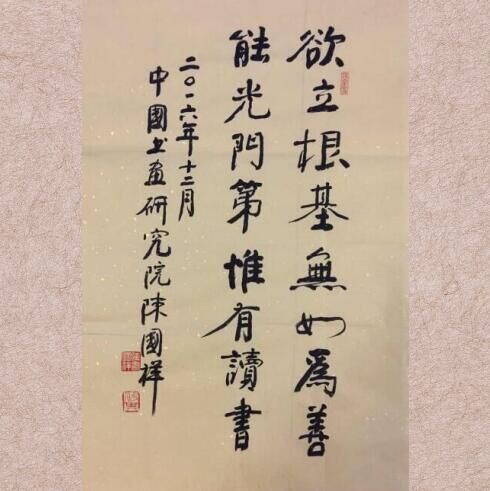 欲立根基無如爲善
能光門第惟有讀書
二〇一六年十二月
中國书画研究院陳國祥